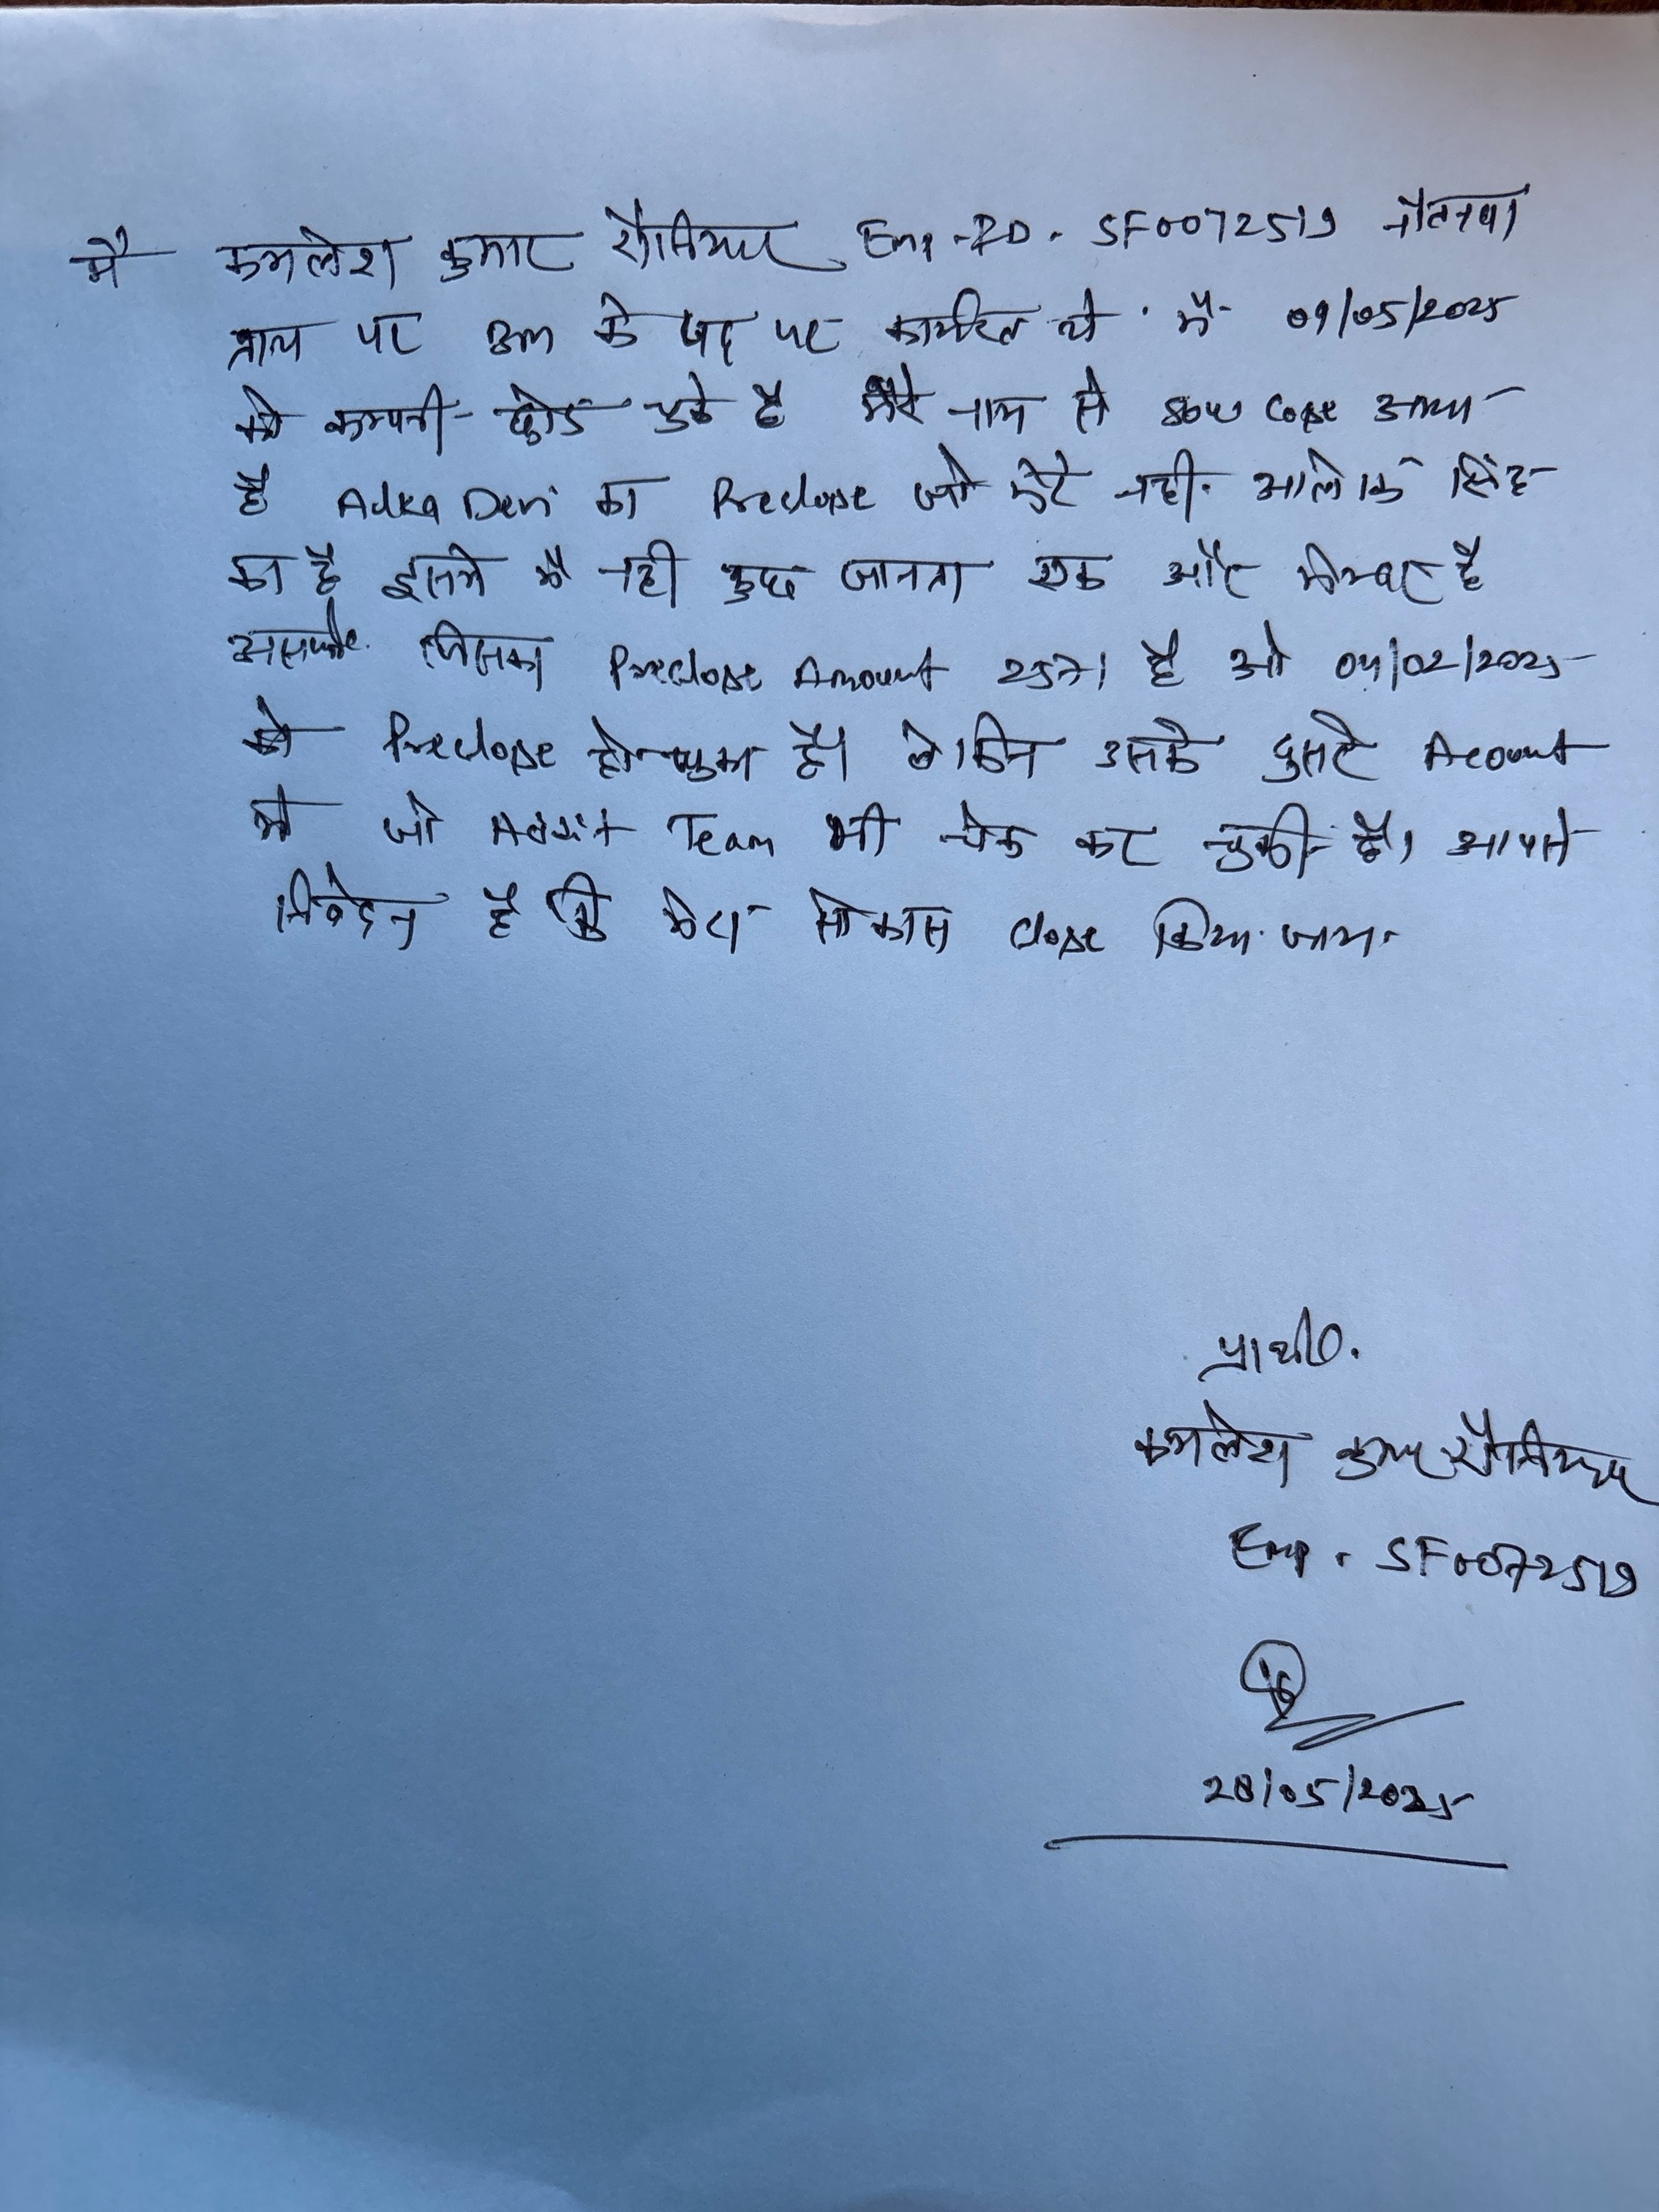 मै कमलेश कुमार Emp-ID. SF0072519 नौतनवा
ब्राच पर BM के पद पर कार्यरत थे मै 09/05/2025
को कम्पनी छोड चुके है मेरे नाम से आया
है Devi का Preclose जो मेरे नही. आलोक सिंह
का है इसमे मै नही कुछ जानता एक और मेम्बर है
जिसका Preclose Amount 2571 है ओ 04/02/2025
को Preclose हो चुका है। लेकिन उसके दुसरे Acount
मे जो Team भी चेक कर चुकी है। आपसे
निवेदन है कि मेरा सोकास Close किया जाय.
प्रार्थी.
कमलेश कुमार
Emp. SF0072519
28/05/2025